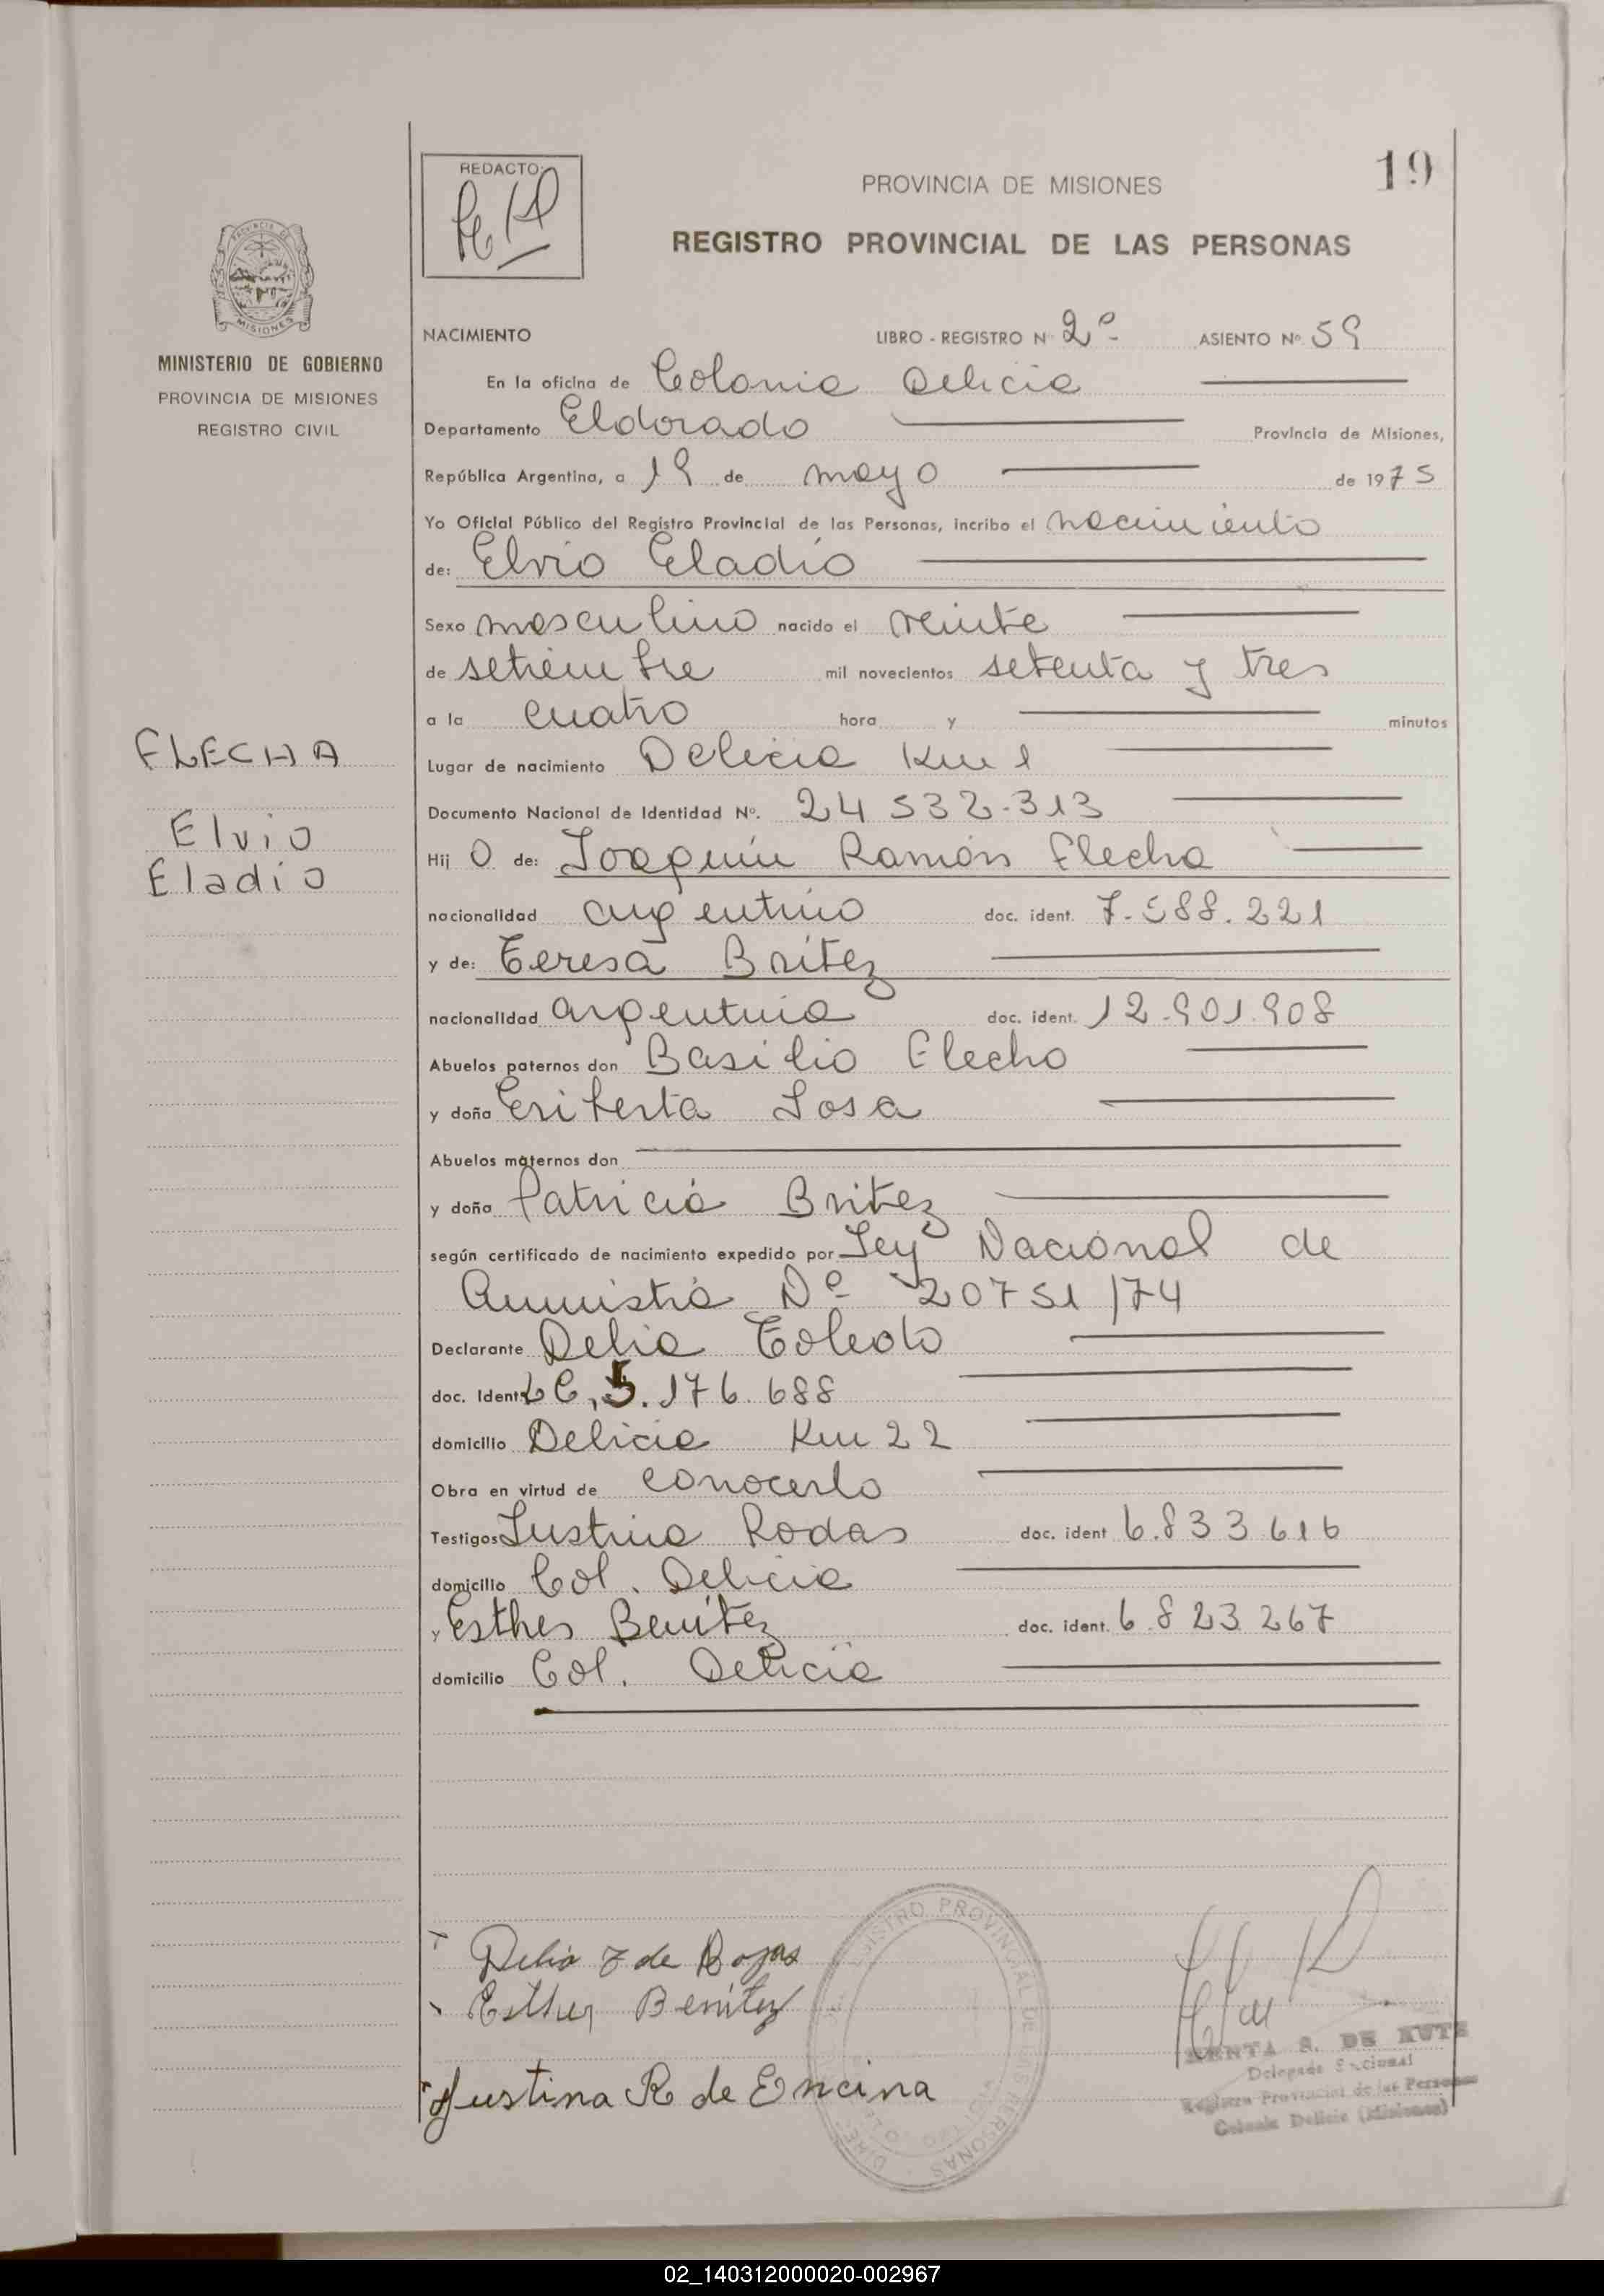 19
REDACTO:
PROVINCIA DE MISIONES
REGISTRO PROVINCIAL DE LAS PERSONAS
MISIONES
MINISTERIO DE GOBIERNO
PROVINCIA DE MISIONES
REGISTRO CIVIL
FLECHA
Elvio
Eladio
NACIMIENTO LIBRO - REGISTRO Nº 2º ASIENTO Nº 59
En la oficina de Colonia Delicia
Departamento Eldorado Provincia de Misiones,
República Argentina, a 19 de mayo de 1975
Yo Oficial Público del Registro Provincial de las Personas, incribo el nacimiento
de: Elvio Eladio
Sexo masculino nacido el veinte
de setiembre mil novecientos setenta y tres
a la cuatro hora y minutos
Lugar de nacimiento Delicia Km 1
Documento Nacional de Identidad Nº. 24 532.313
Hij o de: Joaquín Ramón Flecha
nacionalidad argentino doc. ident. 7.588.221
y de: Teresa Britez
nacionalidad argentina doc. ident. 12.901.908
Abuelos paternos don Basilio Flecha
y doña Eriberta Sosa
Abuelos maternos don
y doña Patricia Britez
según certificado de nacimiento expedido por Ley Nacional de
Amnistia Nº 20751/74
Declarante Delia Toledo
doc. Ident. LC. 5.176.688
domicilio Delicia Km 22
Obra en virtud de conocerlo
Testigos Justina Rodas doc. ident 6.833.616
domicilio Col. Delicia
y Esther Benítez doc. ident. 6.823.267
domicilio Col. Delicia
Delia T de Rojas
Esther Benítez
Justina R de Encina
REGISTRO PROVINCIAL DE LAS PERSONAS
S. DE KUTZ
Delegada Seccional
Registro Provincial de las Personas
Colonia Delicia (Misiones)
02_140312000020-002967